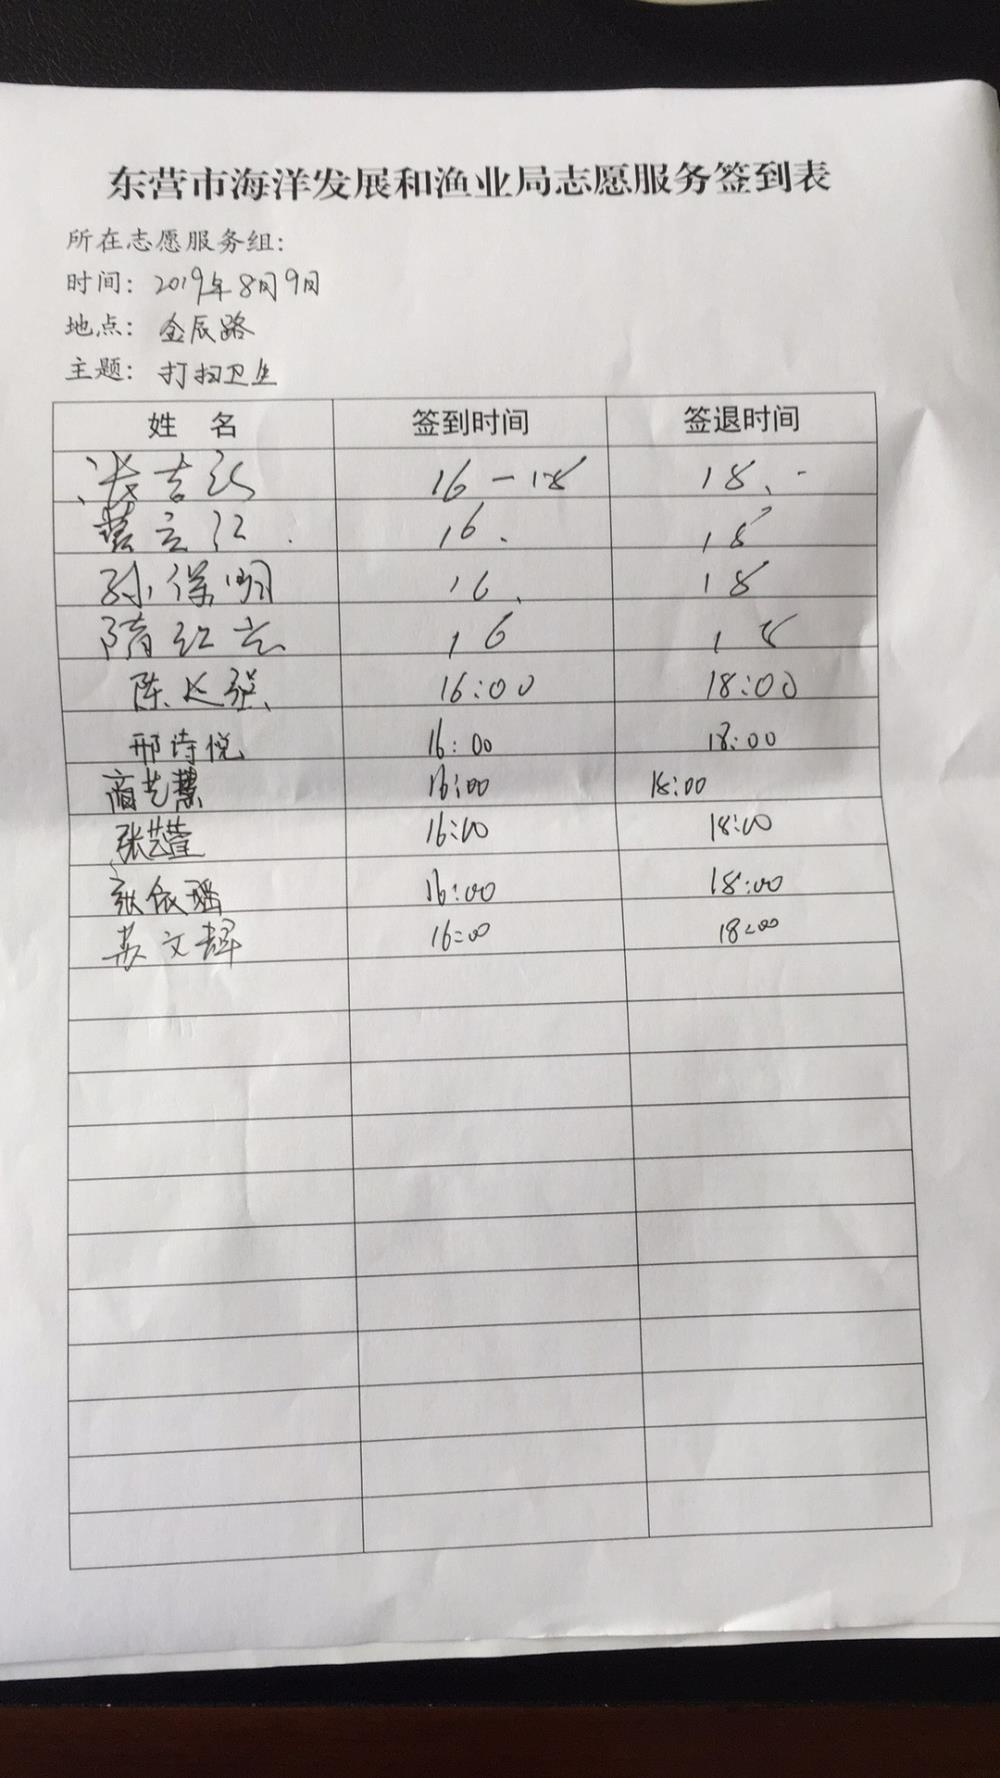 东营市海洋发展和渔业局志愿服务签到表
所在志愿服务组:
时间: 2019年8月9日
地点: 金辰路
主题: 打扫卫生
姓 名 签到时间 签退时间
16-18 18.
16. 18
孙保明 16. 18
隋红 16 18
陈延强 16:00 18:00
邢诗悦 16:00 18:00
商艺慧 16:00 18:00
张艺萱 16:00 18:00
张依瑶 16:00 18:00
苏文辉 16:00 18:00